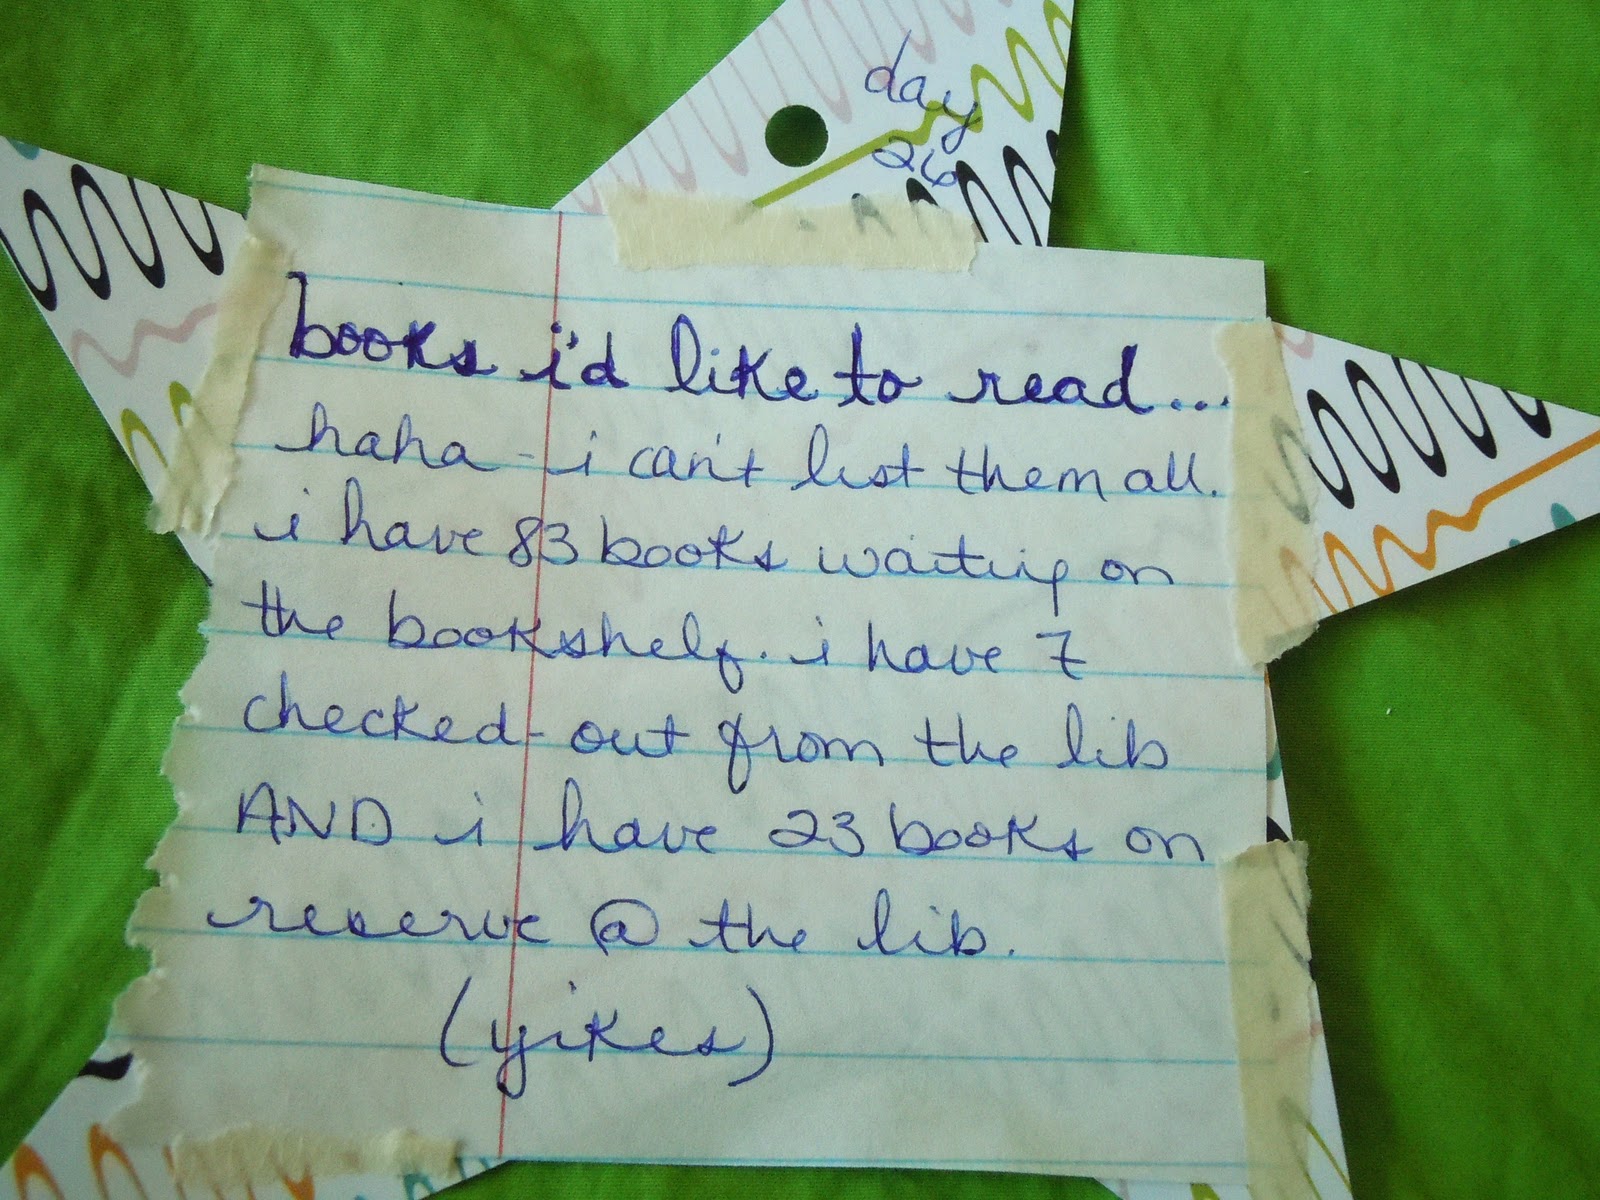 day
26
books i'd like to read...
haha - i can't list them all.
i have 83 books waiting on
the bookshelf. i have 7
checked out from the lib
AND i have 23 books on
reserve @ the lib.
(yikes)